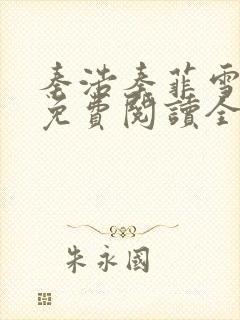 秦浩秦菲雪
免費閱讀全
朱永國